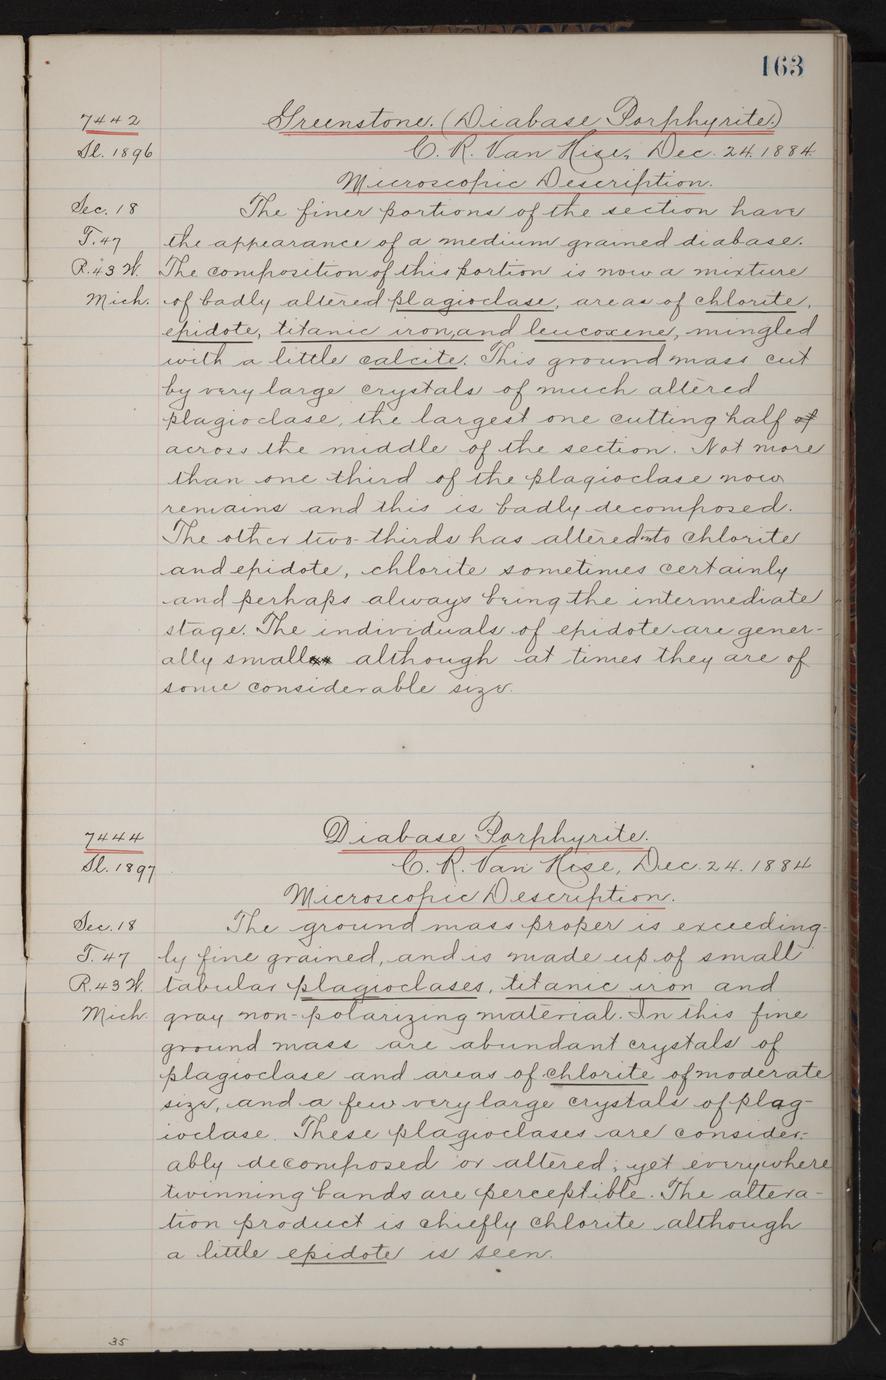 163
7442
Greenstone. (Diabase Porphyrite.)
Sl. 1896
C. R. Van Hise, Dec. 24. 1884.
Microscopic Description.
Sec. 18
The finer portions of the section have
T. 47
the appearance of a medium grained diabase.
R. 43 W.
The composition of this portion is now a mixture
Mich.
of badly altered plagioclase, areas of chlorite,
epidote, titanic iron, and leucoxene, mingled
with a little calcite. This ground mass cut
by very large crystals of much altered
plagioclase, the largest one cutting half of
across the middle of the section. Not more
than one third of the plagioclase now
remains and this is badly decomposed.
The other two-thirds has altered into chlorite
and epidote, chlorite sometimes certainly
and perhaps always being the intermediate
stage. The individuals of epidote are gener-
ally small although at times they are of
some considerable size.
7444
Diabase Porphyrite.
Sl. 1897
C. R. Van Hise, Dec. 24. 1884
Microscopic Description.
Sec. 18
The ground mass proper is exceeding-
T. 47
ly fine grained, and is made up of small
R. 43 W.
tabular plagioclases, titanic iron and
Mich.
gray non-polarizing material. In this fine
ground mass are abundant crystals of
plagioclase and areas of chlorite of moderate
size, and a few very large crystals of plag-
ioclase. These plagioclases are consider-
ably decomposed or altered; yet everywhere
twinning bands are perceptible. The altera-
tion product is chiefly chlorite although
a little epidote is seen.
35